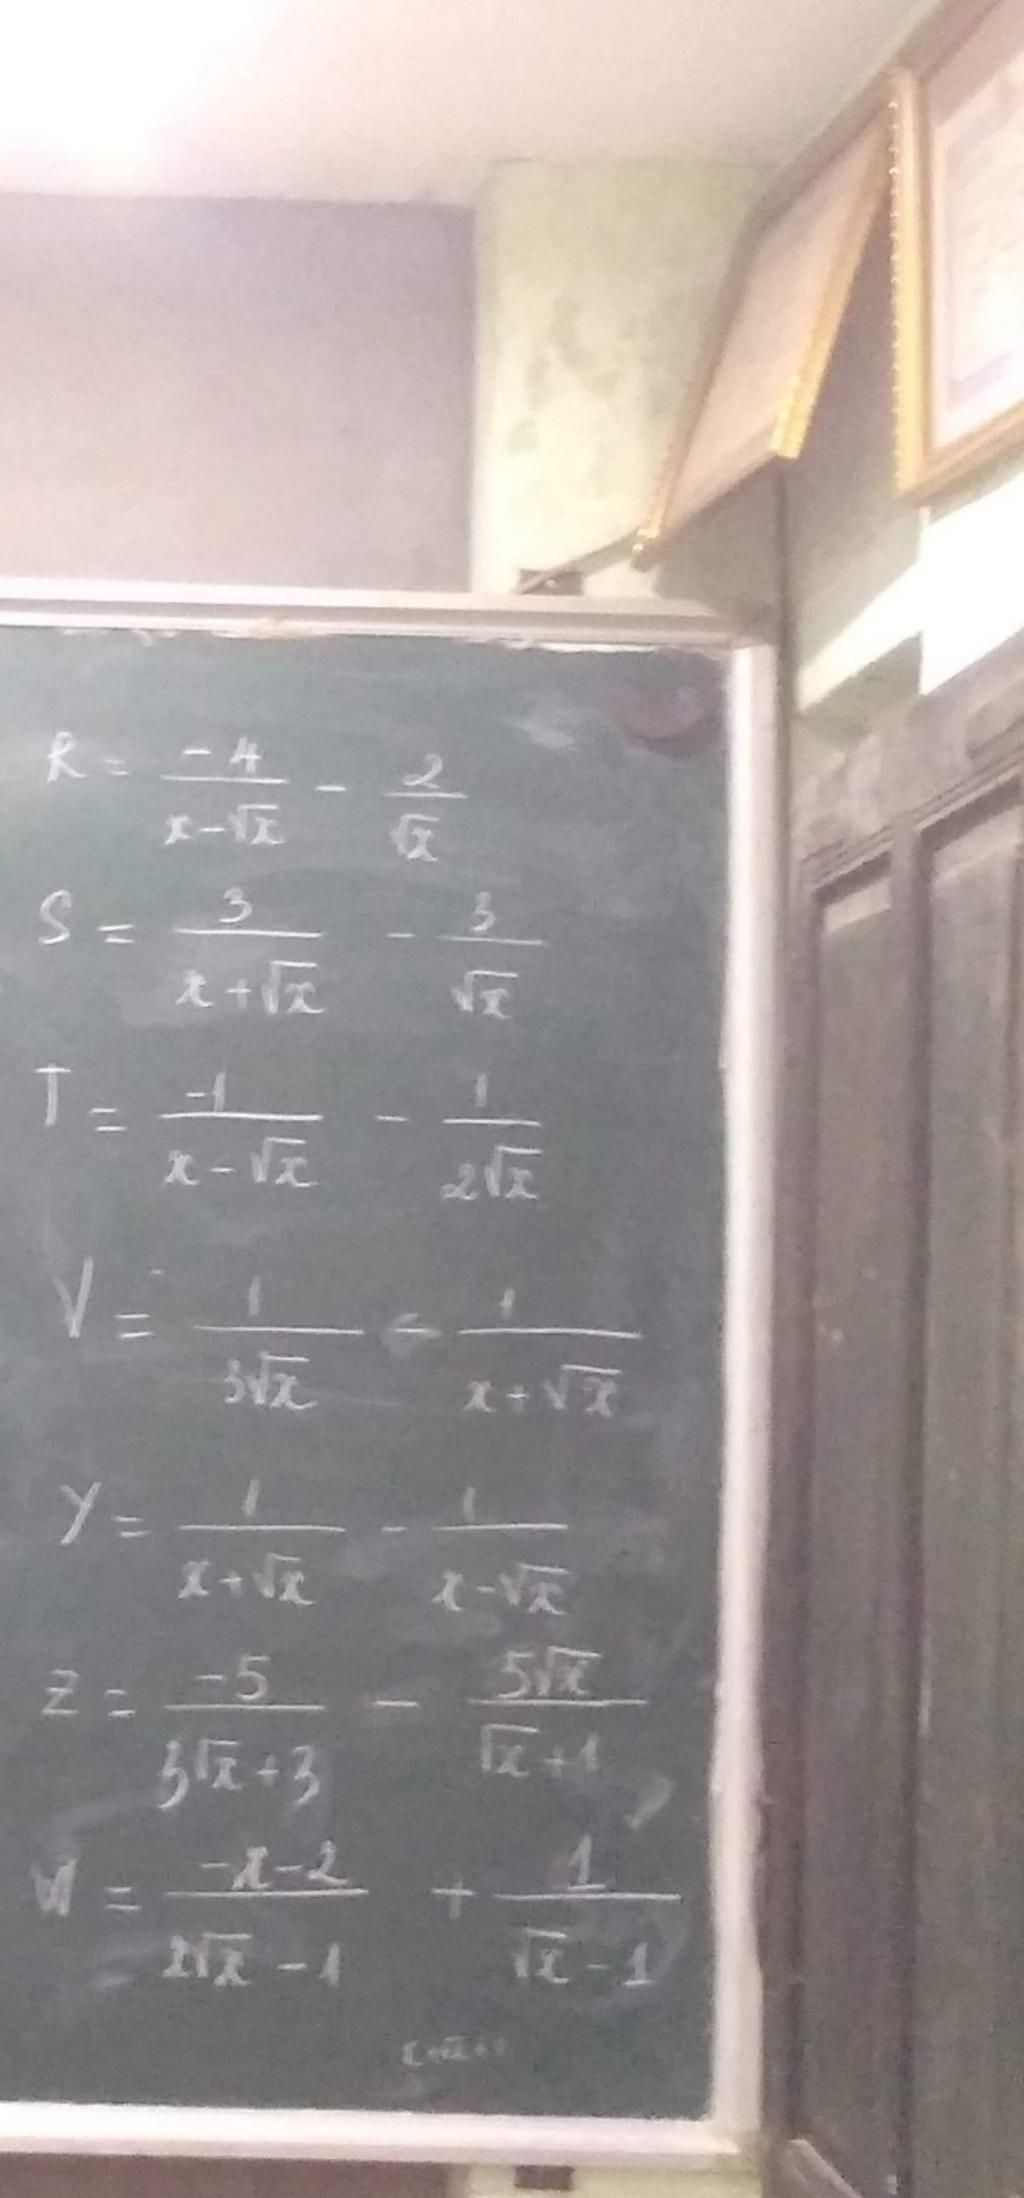 R = -4/(x-√x) - 2/√x
S = 3/(x+√x) - 3/√x
T = -1/(x-√x) - 1/(2√x)
V = 1/(3√x) - 1/(x+√x)
Y = 1/(x+√x) - 1/(x-√x)
Z = -5/(3√x+3) - 5√x/(√x+1)
= (-x-2)/(2√x-1) + 1/(√x-1)